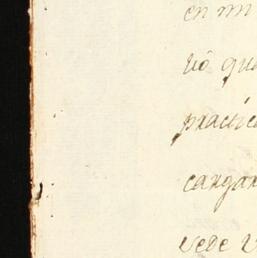 en mi
vó qu
practic
cargar
vede v